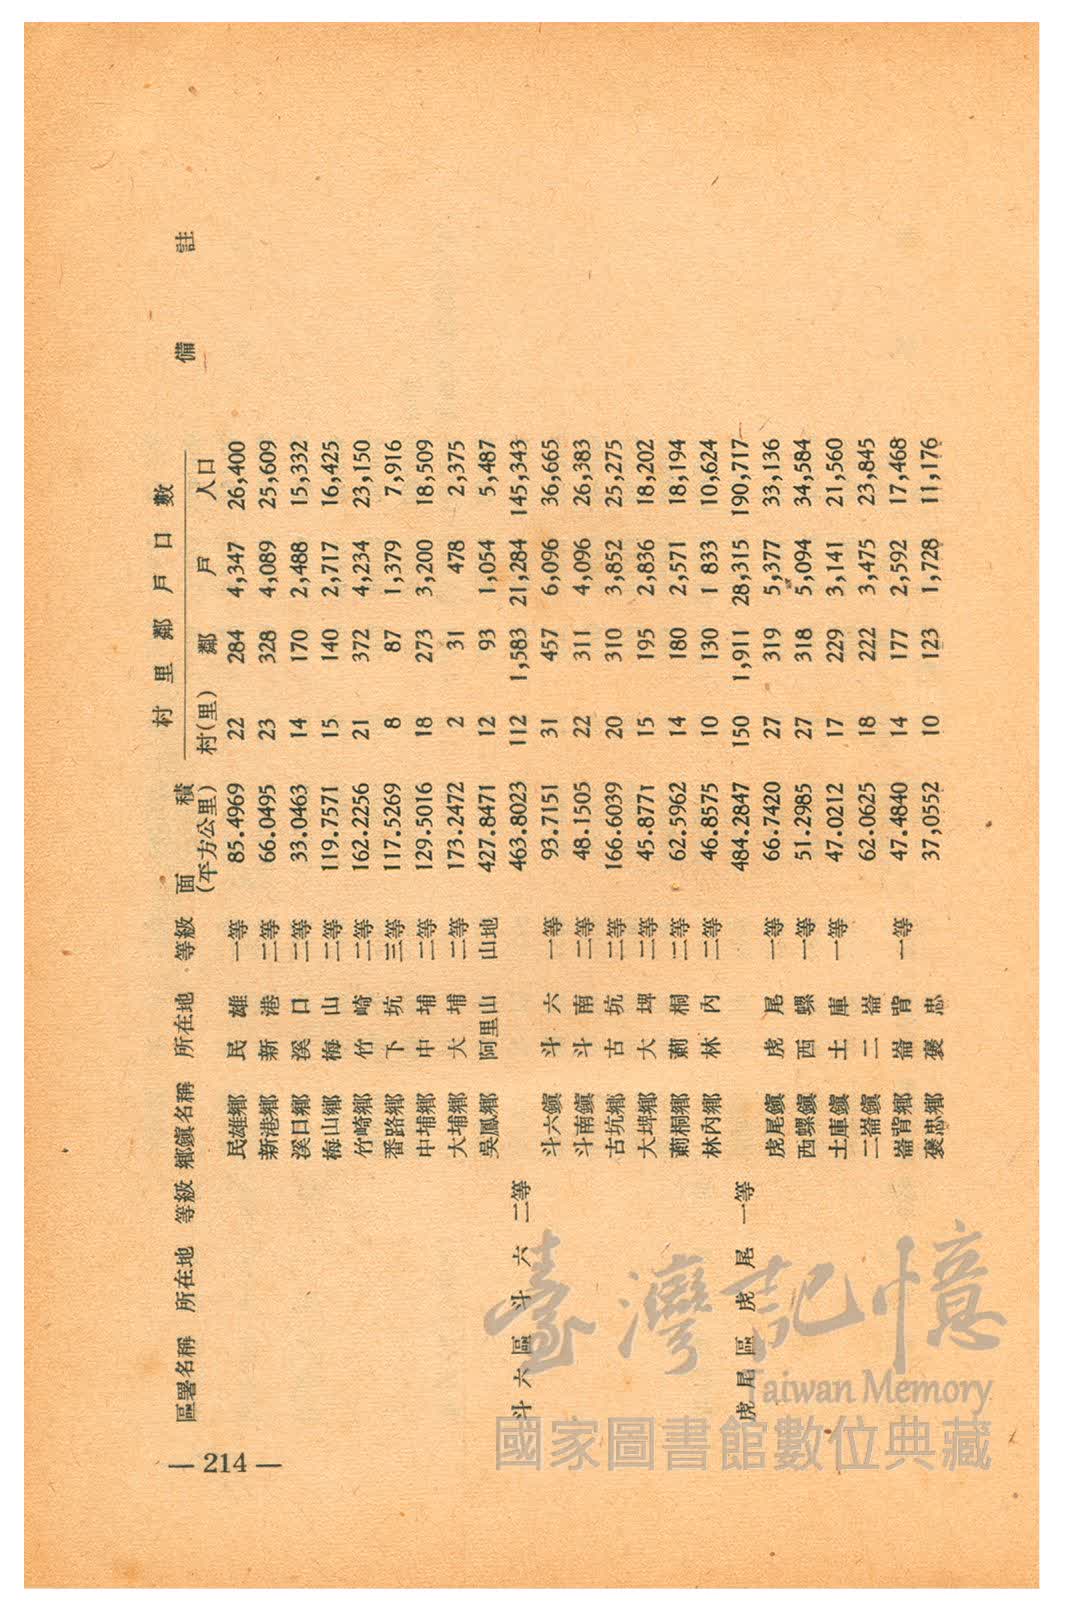 區署名稱 所在地 等級 鄉鎭名稱 所在地 等級 面積(平方公里) 村里鄰戶口數 備註
村(里) 鄰 戶 人口
民雄鄉 民雄 一等 85.4969 22 284 4,347 26,400
新港鄉 新港 二等 66.0495 23 328 4,089 25,609
溪口鄉 溪口 二等 33.0463 14 170 2,488 15,332
梅山鄉 梅山 二等 119.7571 15 140 2,717 16,425
竹崎鄉 竹崎 二等 162.2256 21 372 4,234 23,150
番路鄉 下坑 三等 117.5269 8 87 1,379 7,916
中埔鄉 中埔 二等 129.5016 18 273 3,200 18,509
大埔鄉 大埔 二等 173.2472 2 31 478 2,375
吳鳳鄉 阿里山 山地 427.8471 12 93 1,054 5,487
斗六區 斗六 二等 463.8023 112 1,583 21,284 145,343
斗六鎭 斗六 一等 93.7151 31 457 6,096 36,665
斗南鎭 斗南 二等 48.1505 22 311 4,096 26,383
古坑鄉 古坑 二等 166.6039 20 310 3,852 25,275
大埤鄉 大埤 二等 45.8771 15 195 2,836 18,202
莿桐鄉 莿桐 二等 62.5962 14 180 2,571 18,194
林內鄉 林內 二等 46.8575 10 130 1 833 10,624
虎尾區 虎尾 一等 484.2847 150 1,911 28,315 190,717
虎尾鎭 虎尾 一等 66.7420 27 319 5,377 33,136
西螺鎭 西螺 一等 51.2985 27 318 5,094 34,584
土庫鎭 土庫 一等 47.0212 17 229 3,141 21,560
二崙鎭 二崙 62.0625 18 222 3,475 23,845
崙背鄉 崙背 一等 47.4840 14 177 2,592 17,468
褒忠鄉 褒忠 37,0552 10 123 1,728 11,176
— 214 —
臺灣記憶
Taiwan Memory
國家圖書館數位典藏